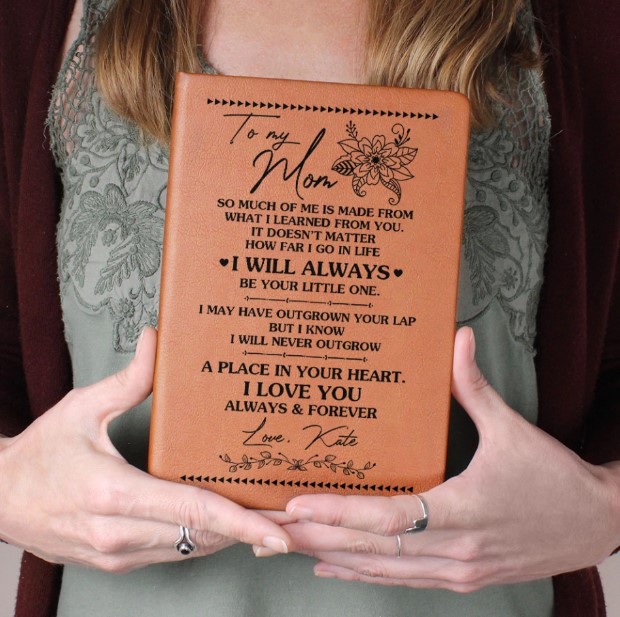 To my
Mom
SO MUCH OF ME IS MADE FROM
WHAT I LEARNED FROM YOU.
IT DOESN'T MATTER
HOW FAR I GO IN LIFE
♥I WILL ALWAYS♥
BE YOUR LITTLE ONE.
I MAY HAVE OUTGROWN YOUR LAP
BUT I KNOW
I WILL NEVER OUTGROW
A PLACE IN YOUR HEART.
I LOVE YOU
ALWAYS & FOREVER
Love, Kate